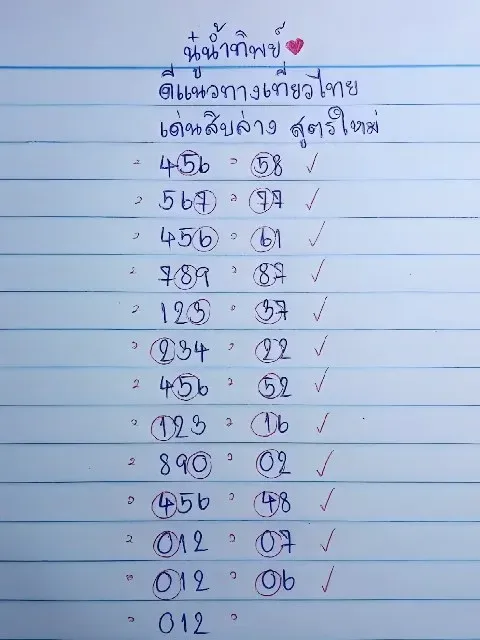 นู๋น้ำทิพย์
ดีแนวทางเที่ยวไทย
เด่นสิบล่าง สูตรใหม่
" 456 " 58 ✓
" 567 " 77 ✓
" 456 " 61 ✓
" 789 " 87 ✓
" 123 " 37 ✓
" 234 " 22 ✓
" 456 " 52 ✓
" 123 " 16 ✓
" 890 " 02 ✓
" 456 " 48 ✓
" 012 " 07 ✓
" 012 " 06 ✓
" 012 "